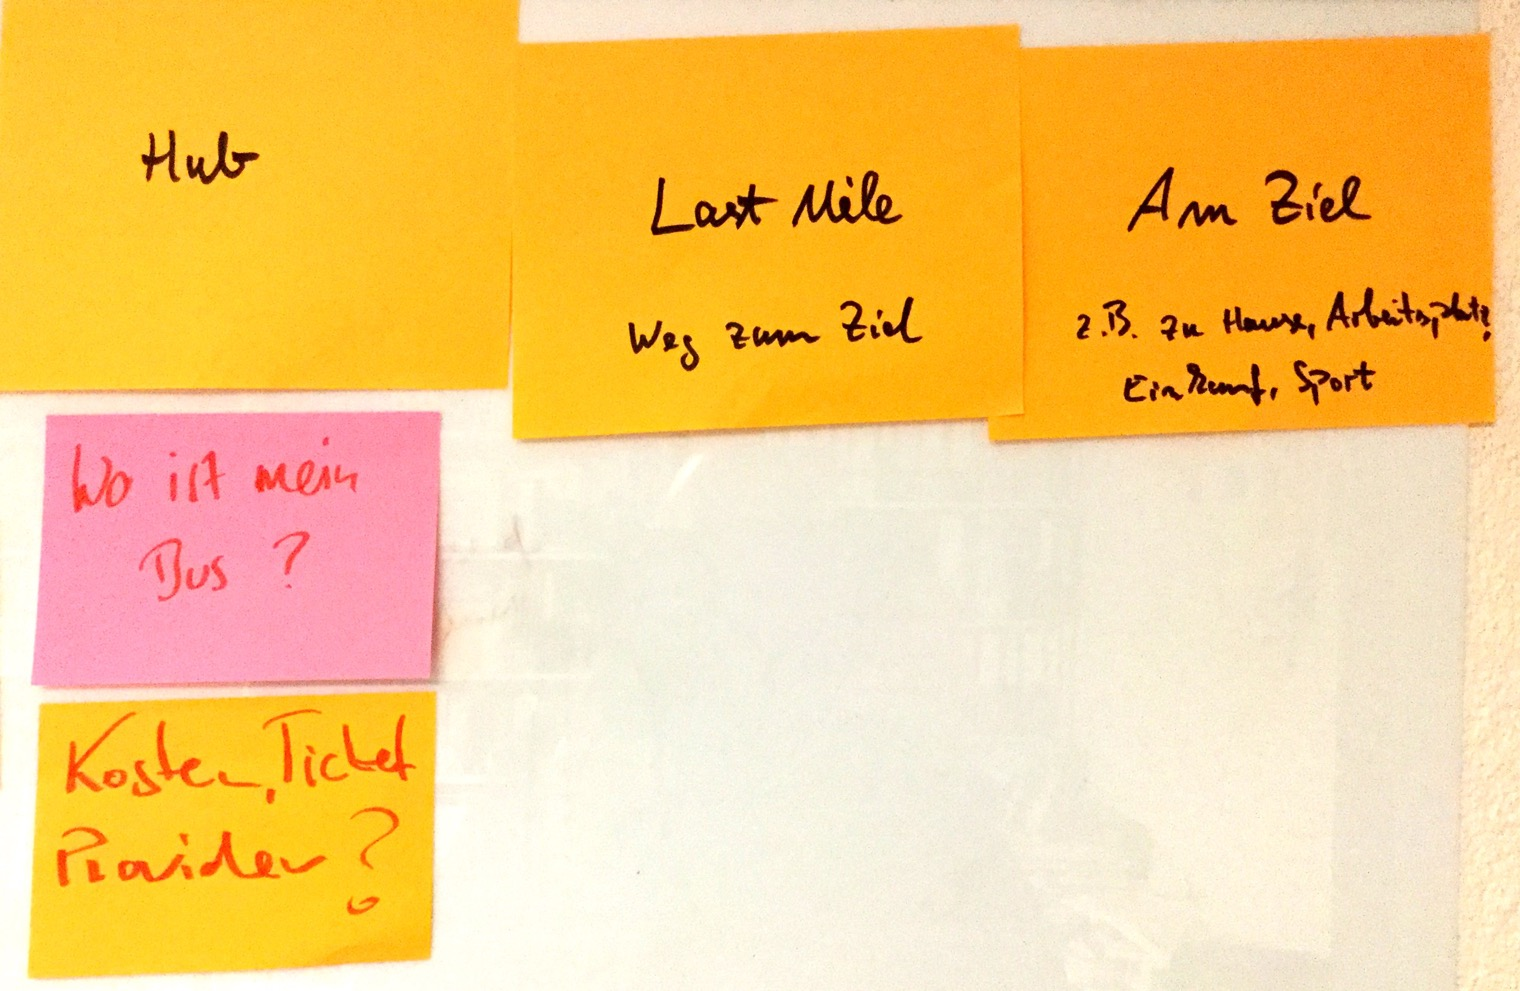 Hub
Last Mile
Weg zum Ziel
Am Ziel
z.B. zu Hause, Arbeitsplatz,
Einkauf, Sport
Wo ist mein
Bus ?
Kosten, Ticket
Provider ?